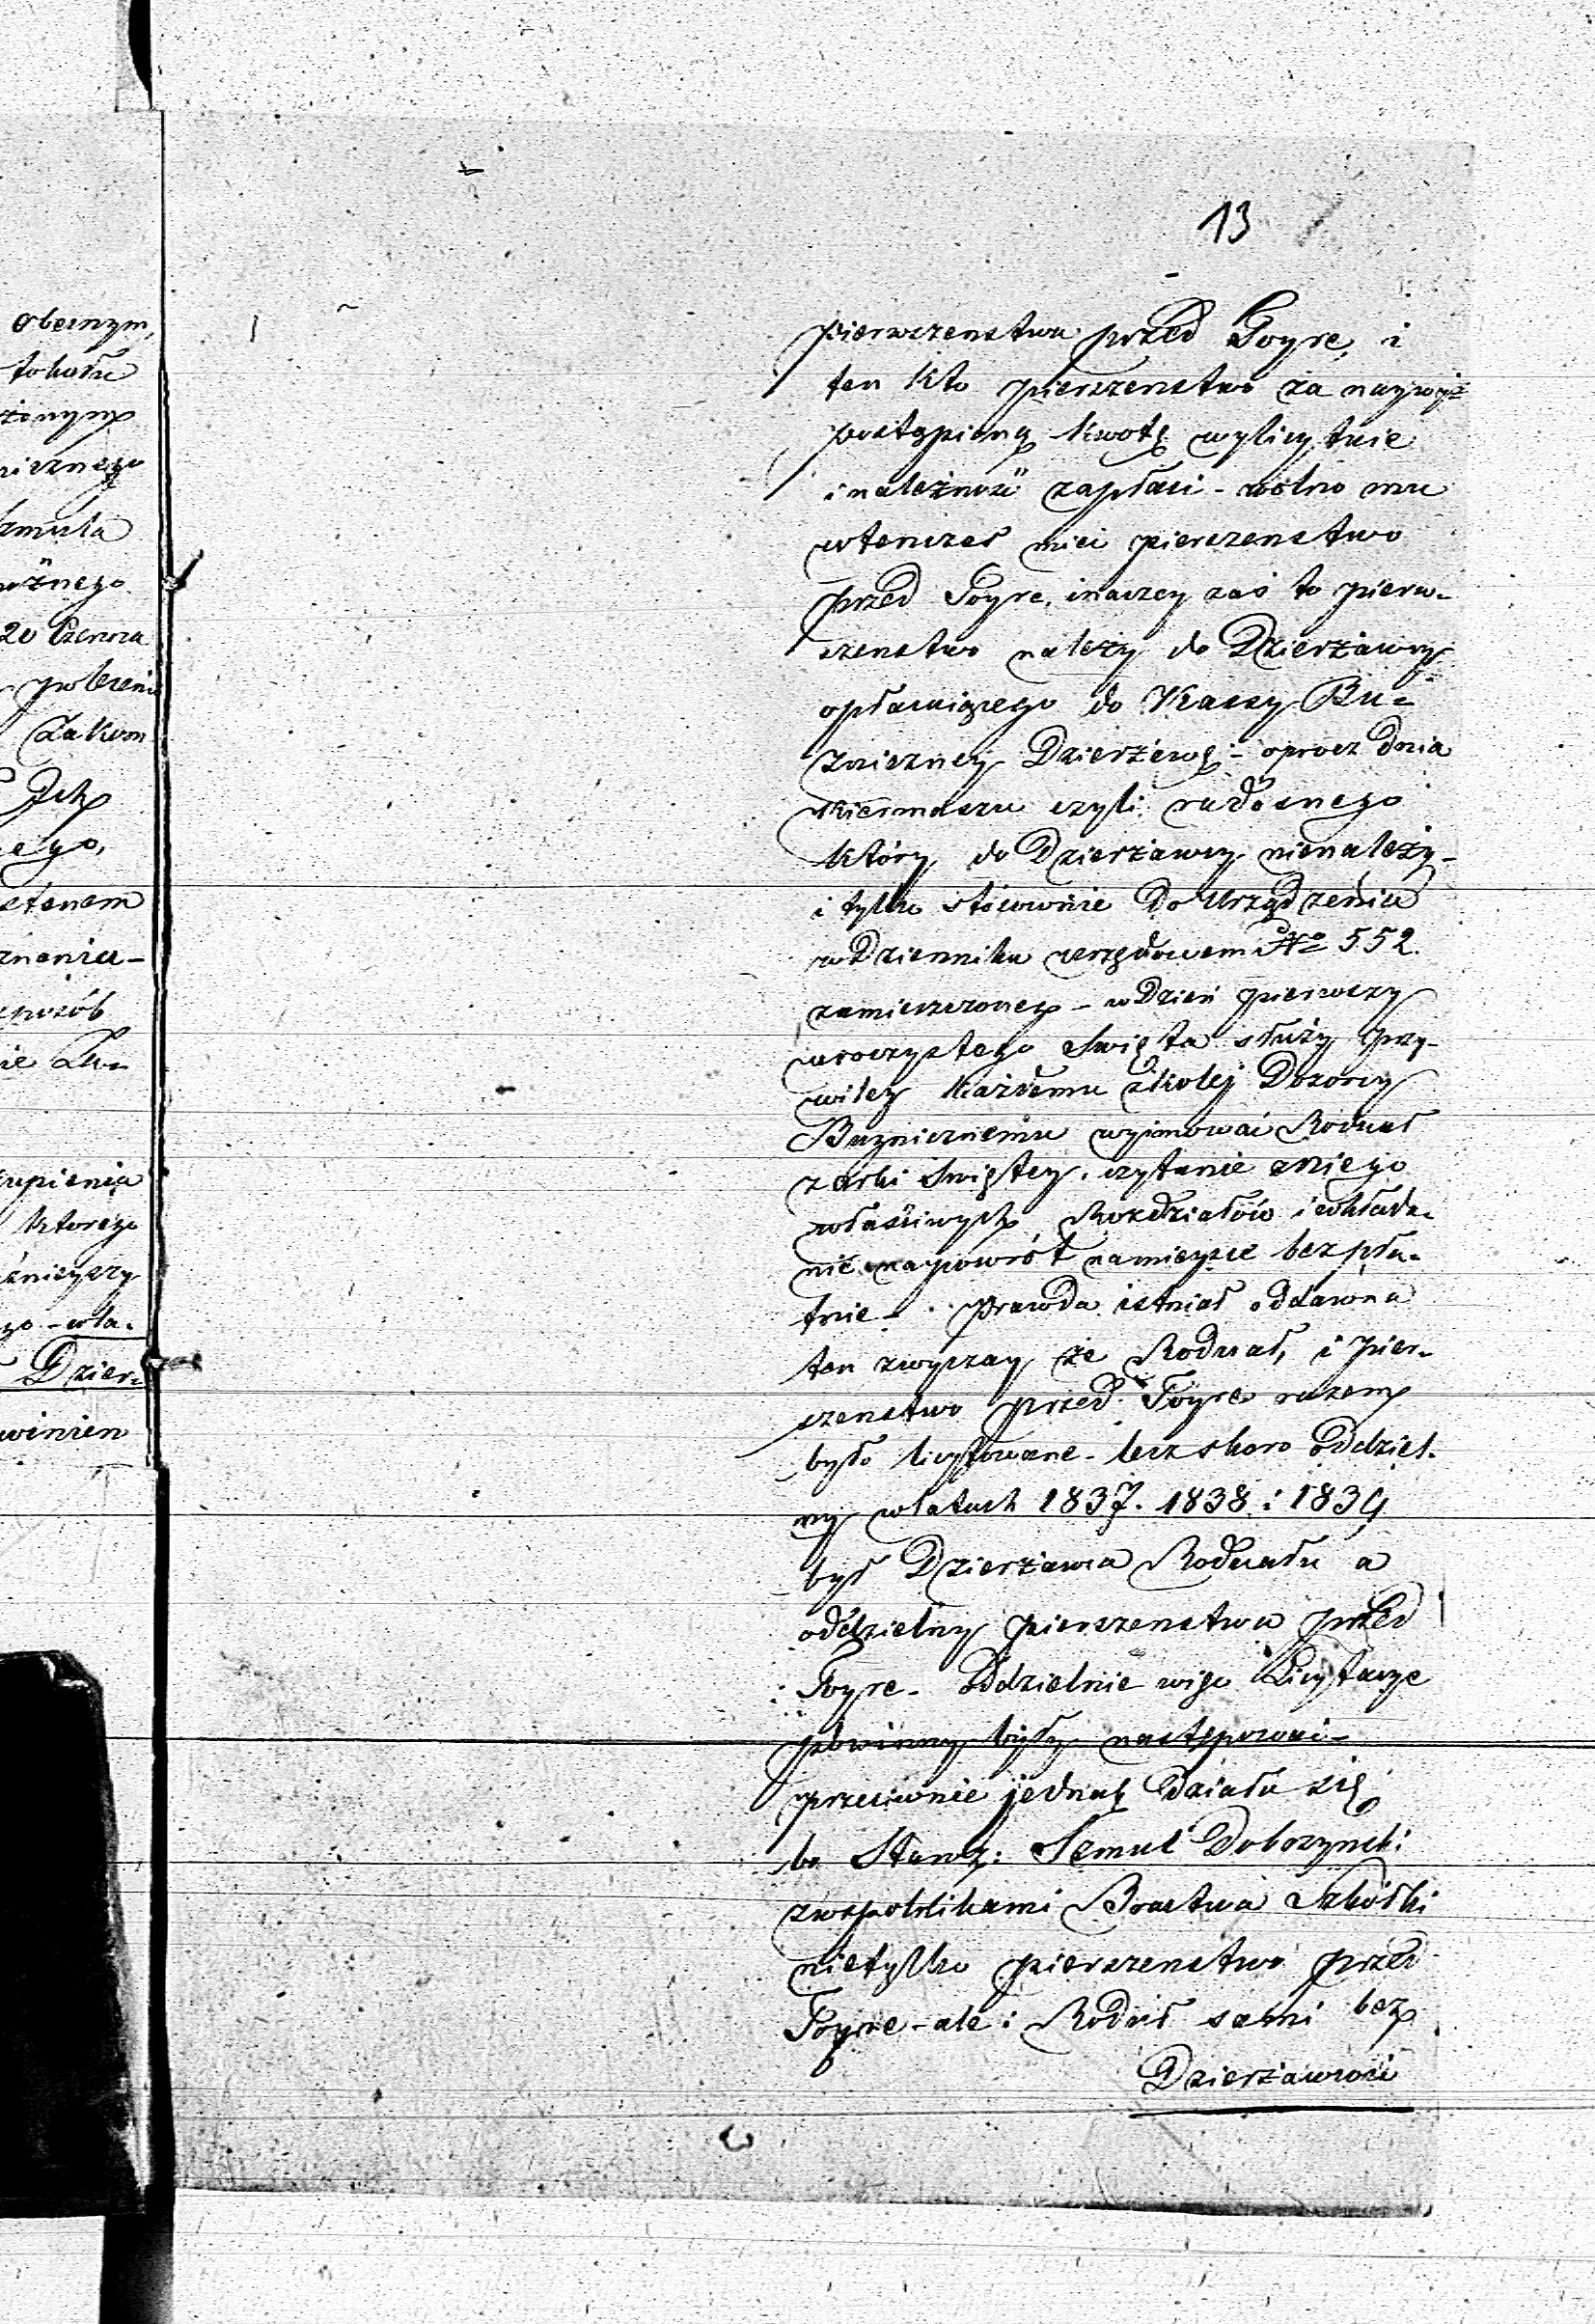 13
pierwszenstwa przed Toyre, i
ten kto pierszenstwo za naywyż
postąpioną kwotę wylicytuie
i należność zapłaci - wolno mu
wtenczas mieć pierszenstwo
przed Toyre, inaczey zaś to pierw-
szenstwo należy do Dzierżawcy
opłacaiącego do Kassy Bu-
zniczney Dzierżawę - oprocz dnia
Kiermaszu czyli radosnego
który do Dzierżawcy nienależy -
i tylko stósownie do Urządzenia
w Dzienniku urzędowem No 552.
zamieszczoney - w Dzień pierwszy
uroczystego Swięta służy przy-
wiley każdemu z kolej Dozorcy
Buzniczniemu wyjmować Roduał
z arki Swiętey, czytanie z niego
właściwych Rozdziałów i wkłada-
nie napowrót na mieysce bezpła-
tnie - prawda istniał oddawna
ten zwyczay że Roduał, i pier-
szenstwo przed Toyre razem
było licytowane - lecz skoro oddziel-
ny w latach 1837. 1838 i 1839
był Dzierżawca Roduału a
oddzielny pierszenstwa przed
Toyre - Oddzielnie więc Licytacye
powinny były następować -
przeciwnie jednak działa się
bo Starz: Szmul Dobrzynski
z wspolnikami Bractwa Szkółki
nietylko pierszenstwo przed
Toyrre - ale i Roduł sami bez
Dzierżawcości
obecnym,
20 Czerwca
Zakon
ego,
znania -
sposób
ie Zu-
upienia
ktorego
go - wła-
Dzier-
winien